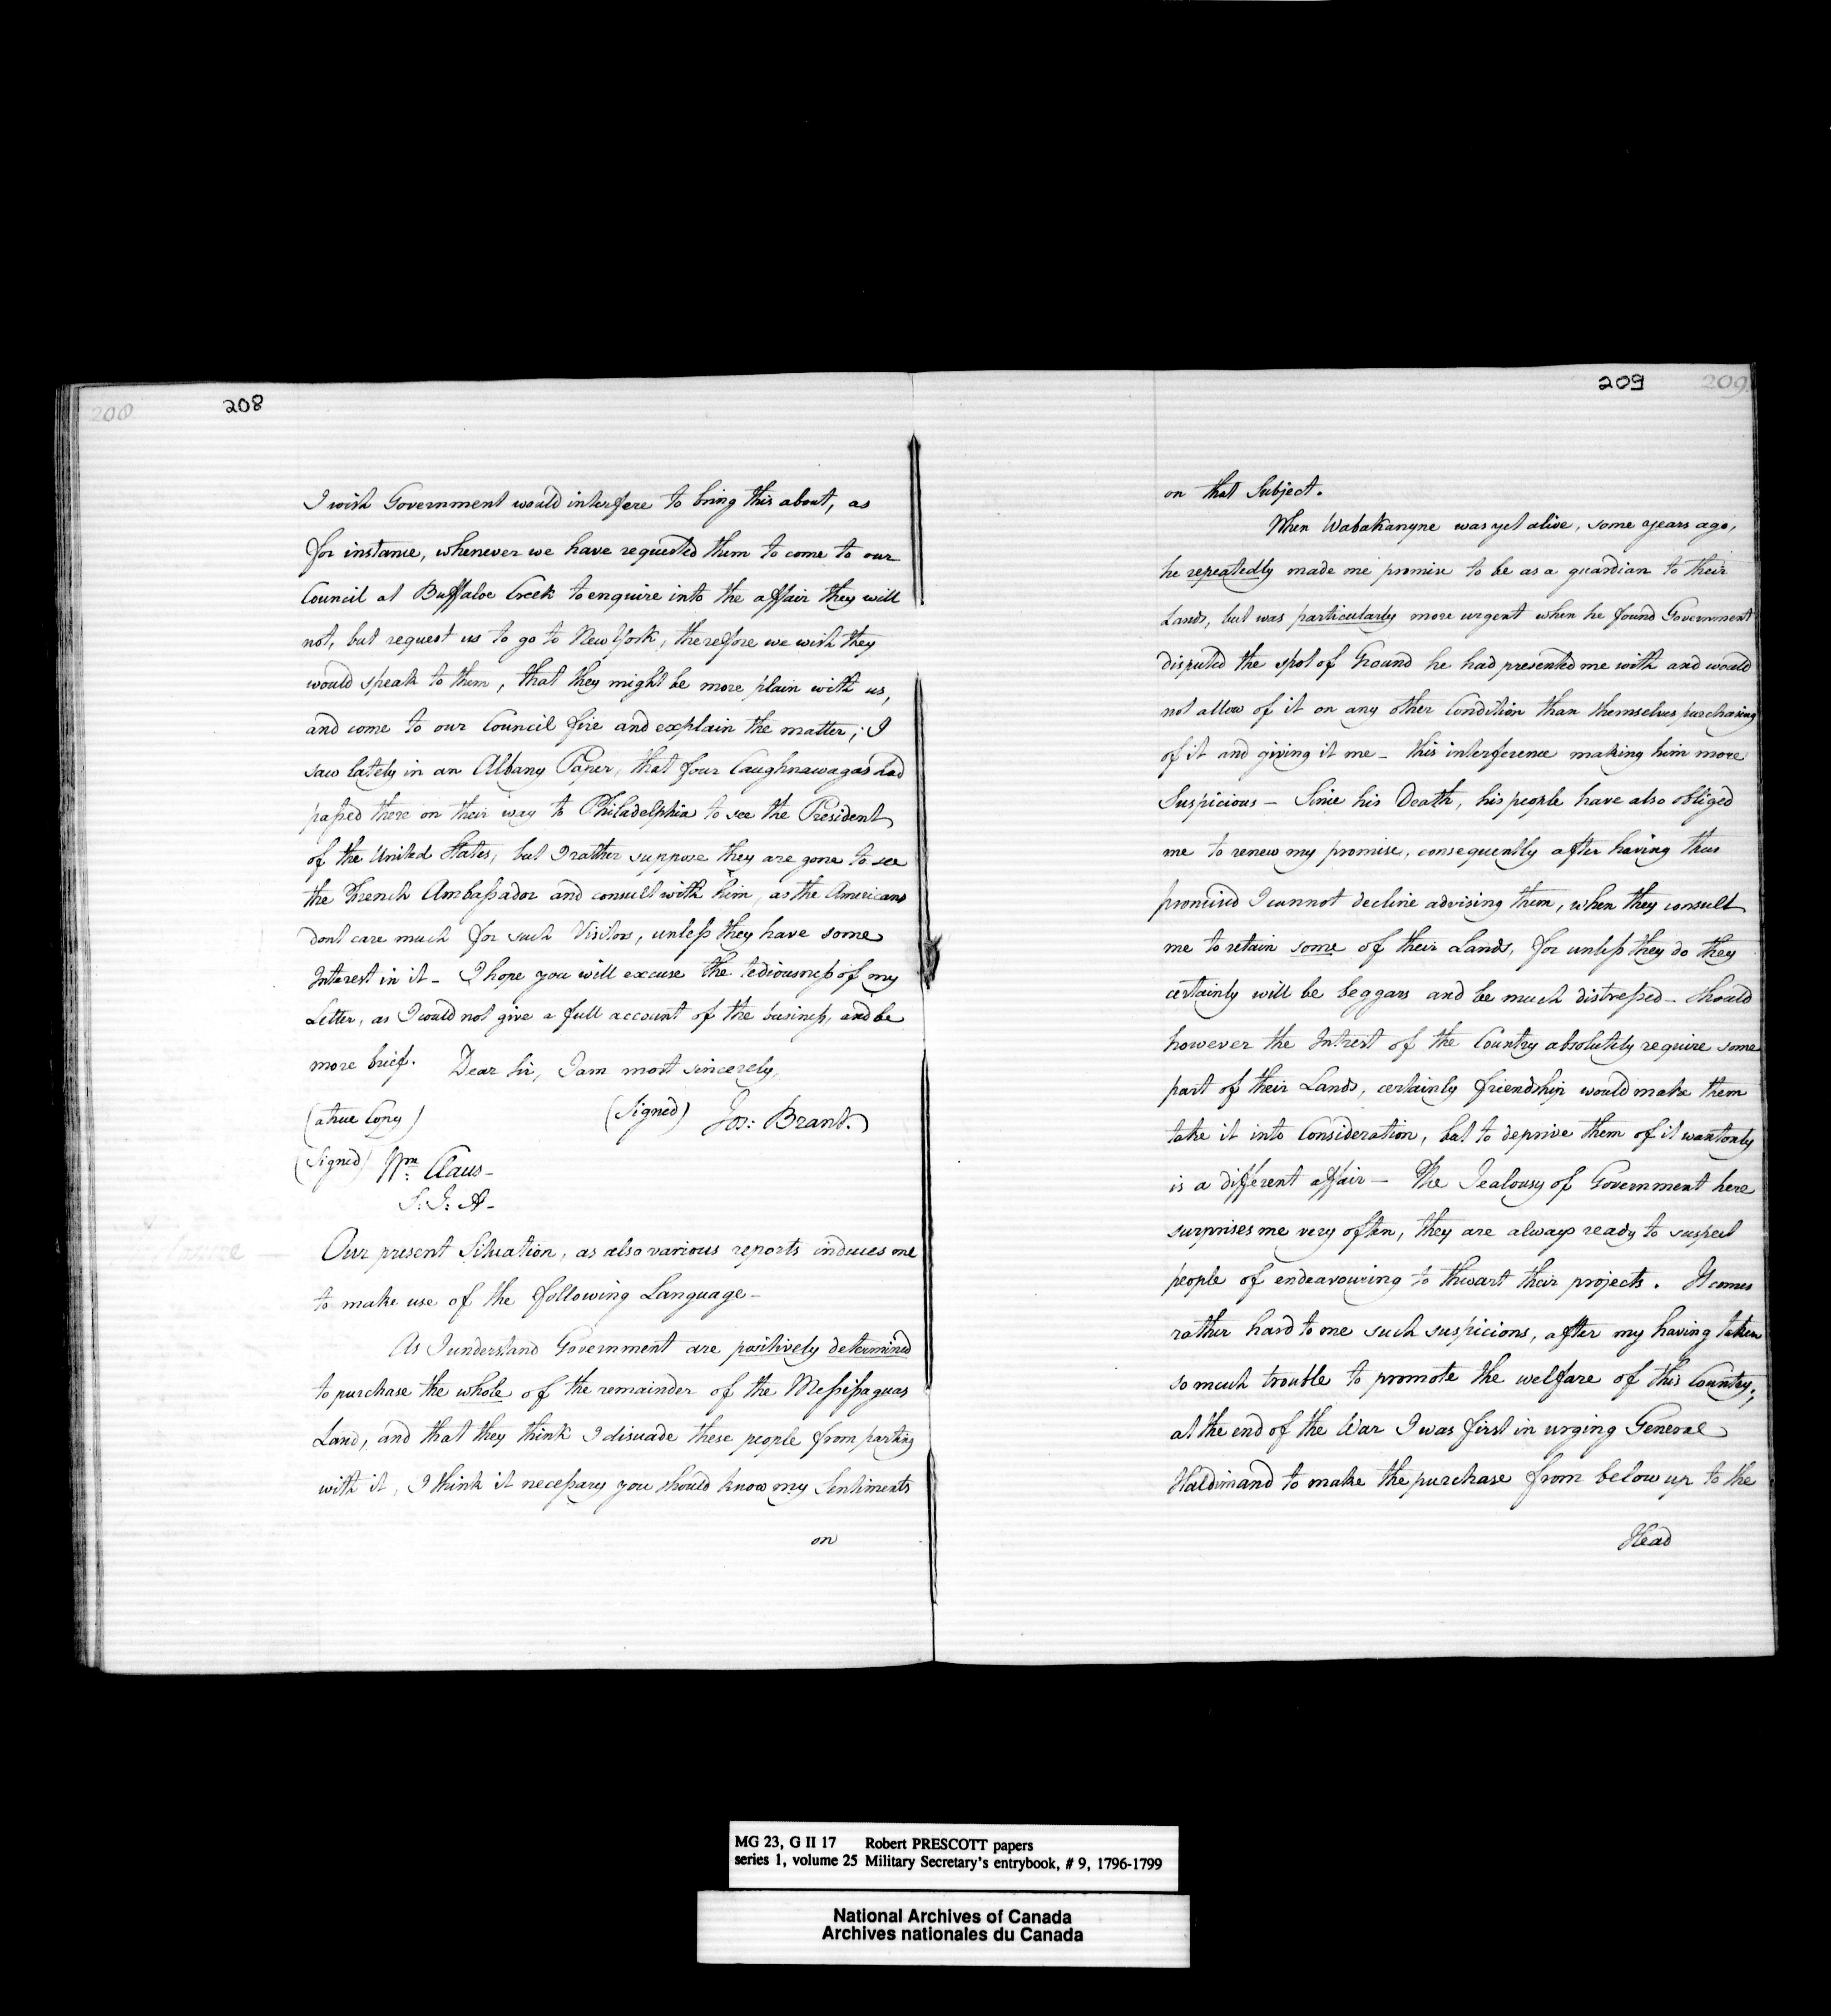 208
208
I wish Government would interfere to bring this about, as
for instance, whenever we have requested them to come to our
Council at Buffaloe Creek to enquire into the affair they will
not, but request us to go to New York, therefore we wish they
would speak to them, that they might be more plain with us,
and come to our Council fire and explain the matter; I
saw lately in an Albany Paper, that four Caughnawagas had
passed there on their way to Philadelphia to see the President
of the United States, but I rather suppose they are gone to see
the French Ambassador and consult with him, as the Americans
dont care much for such Visitors, unless they have some
Interest in it - I hope you will excuse the tediousness of my
Letter, as I would not give a full account of the business, and be
more brief. Dear Sir, I am most sincerely,
(a true Copy) (Signed) Jos: Brant.
(Signed) Wm: Claus -
S: I: A -
Our present Situation, as also various reports induces me
to make use of the following Language -
As I understand Government are positively determined
to purchase the whole of the remainder of the Messissaguas
Land, and that they think I disuade these people from parting
with it, I think it necessary you should know my Sentiments
on
209
209
on that Subject.
When Wabakanyne was yet alive, some years ago,
he repeatedly made me promise to be as a guardian to their
Lands, but was particularly more urgent when he found Government
disputed the spot of Ground he had presented me with and would
not allow of it on any other Condition than themselves purchasing
of it and giving it me - this interference making him more
Suspicious - Since his Death, his people have also obliged
me to renew my promise, consequently after having thus
promised I cannot decline advising them, when they consult
me to retain some of their Lands, for unless they do they
certainly will be beggars and be much distressed - Should
however the Intrest of the Country absolutely require some
part of their Lands, certainly friendship would make them
take it into Consideration, but to deprive them of it wantonly
is a different affair - The Jealousy of Government here
surprises me very often, they are always ready to suspect
people of endeavouring to thwart their projects. It comes
rather hard to me such suspicions, after my having taken
so much trouble to promote the welfare of this Country,
at the end of the War I was first in urging General
Haldimand to make the purchase from below up to the
Head
MG 23, G II 17 Robert PRESCOTT papers
series 1, volume 25 Military Secretary's entrybook, # 9, 1796-1799
National Archives of Canada
Archives nationales du Canada